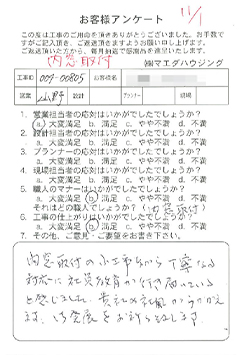 お客様アンケート
11/1
この度は工事のご用命を頂きありがとうございます。お手数で
すがご記入頂き、ご返送頂きますようお願い申し上げます。
ご返送頂いた方から、毎月抽選で感謝品を進呈いたします。
内窓取付
㈱マエダハウジング
工事ID 009-00805 お客様名
営業 山野 設計 プランナー 現場
1. 営業担当者の応対はいかがでしたでしょうか？
a. 大変満足 b. 満足 c. やや不満 d. 不満
2. 設計担当者の応対はいかがでしたでしょうか？
a. 大変満足 b. 満足 c. やや不満 d. 不満
3. プランナーの応対はいかがでしたでしょうか？
a. 大変満足 b. 満足 c. やや不満 d. 不満
4. 現場担当者の応対はいかがでしたでしょうか？
a. 大変満足 b. 満足 c. やや不満 d. 不満
5. 職人のマナーはいかがでしたでしょうか？
a. 大変満足 b. 満足 c. やや不満 d. 不満
それはどの職人でしょうか？（内窓取付
6. 工事の仕上がりはいかがでしたでしょうか？
a. 大変満足 b. 満足 c. やや不満 d. 不満
7. その他、ご意見・ご要望をお書き下さい。
内窓取付の小工事ながら丁寧なる
対応に社員教育が行き届いている
と感じました。貴社の社風がうかがえ
ます。御発展をお祈り致します。